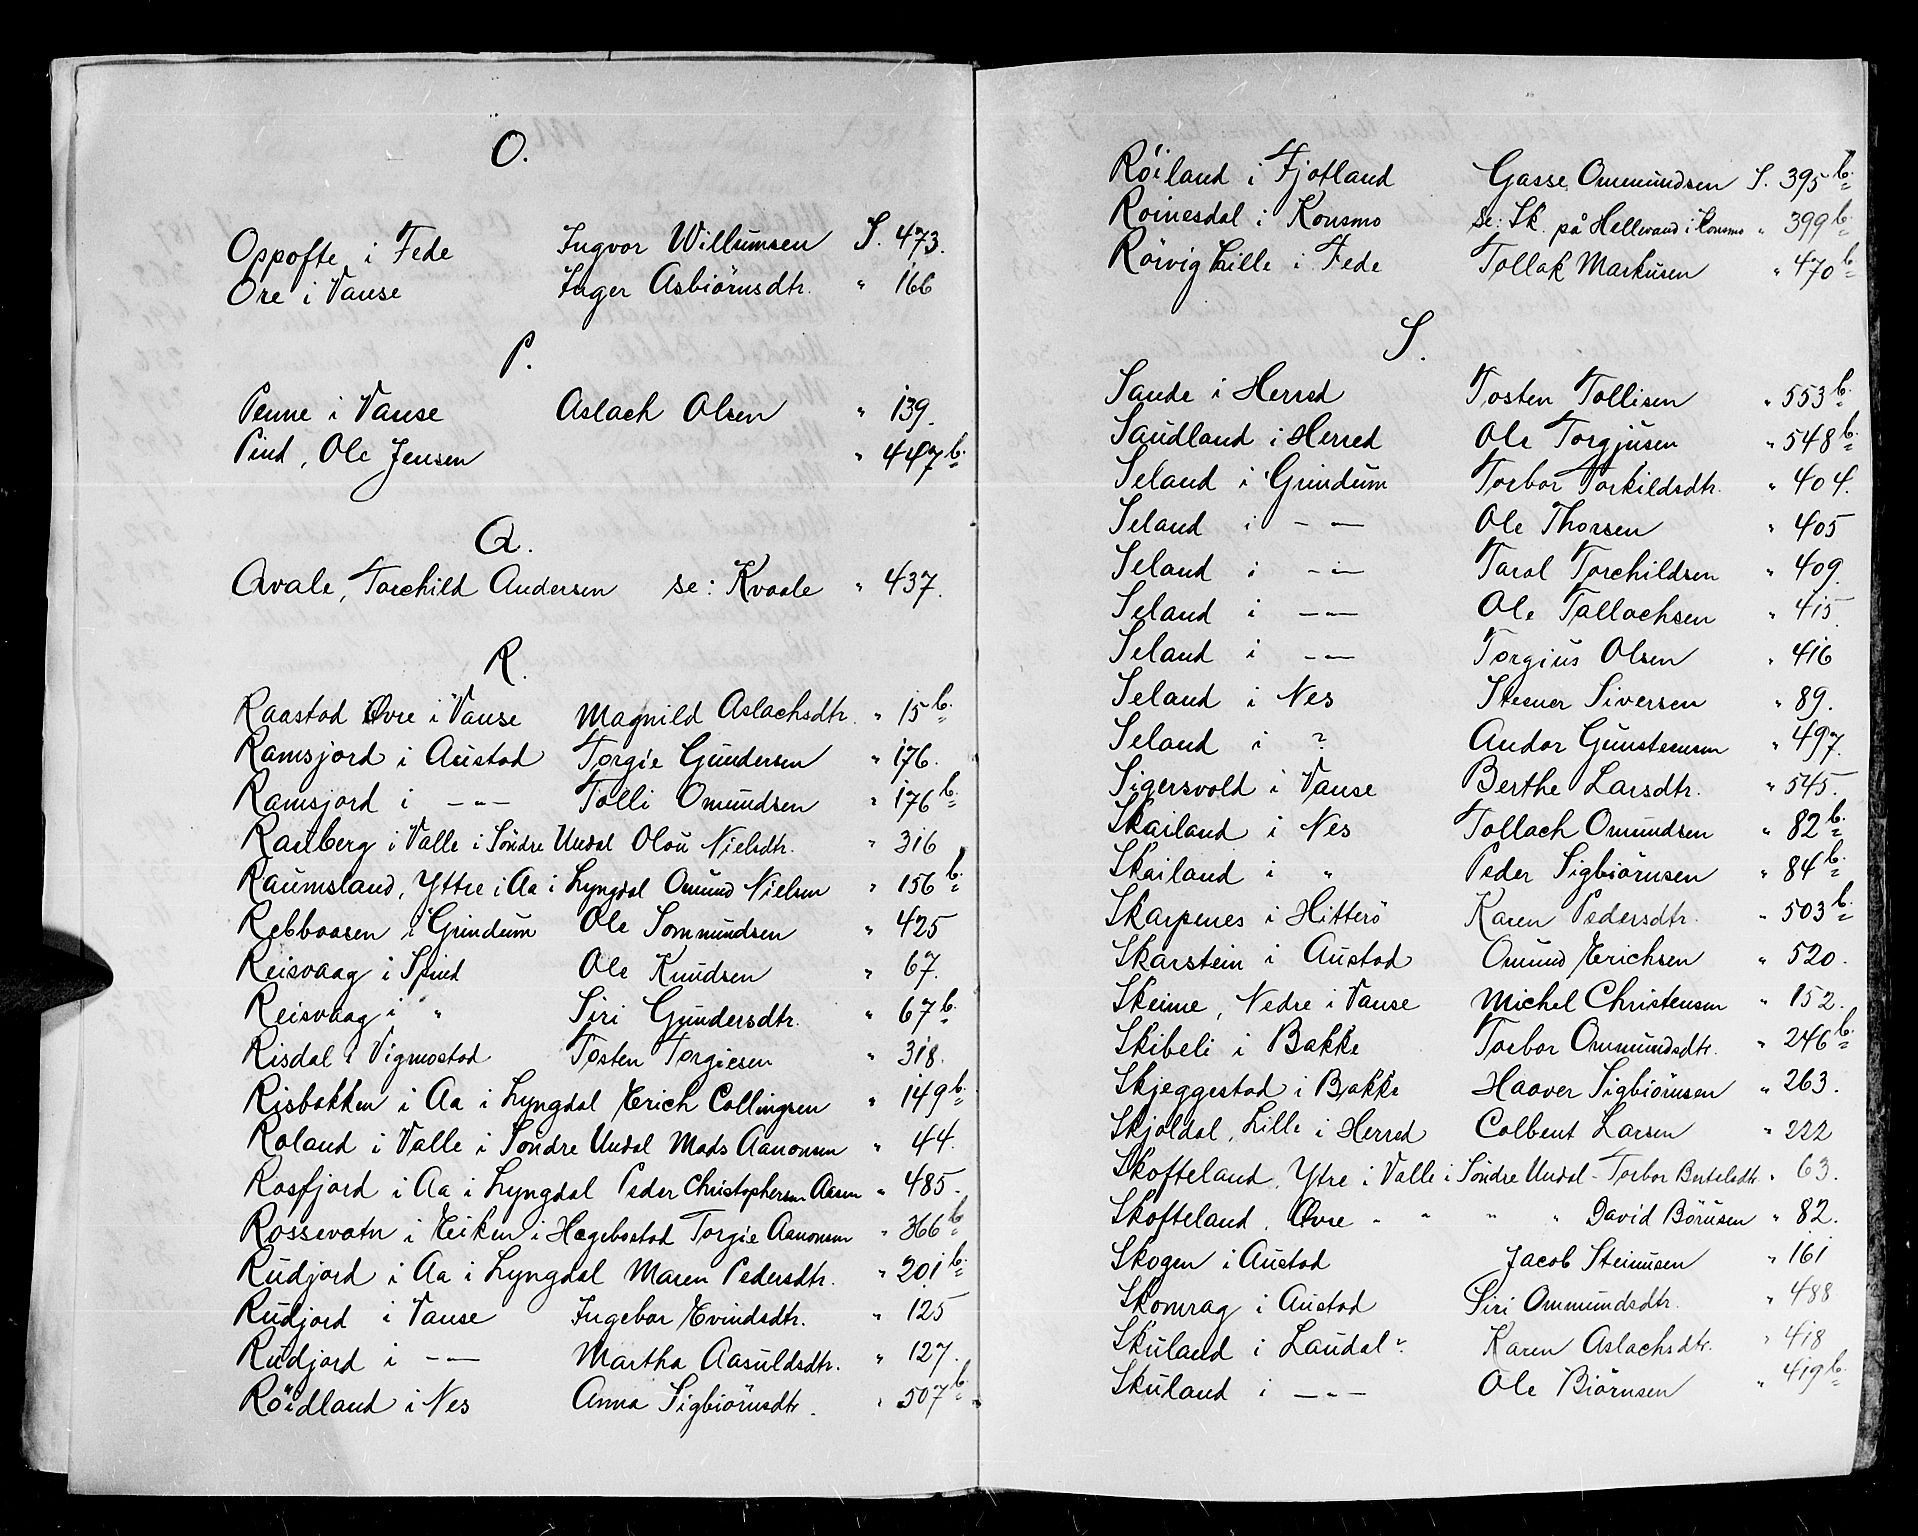 O.
Oppofte i Fede Ingvor Willumsen S. 473.
Ore i Vanse Inger Asbiörnsdtr. " 166
P.
Penne i Vanse Aslach Olsen " 139.
Pind, Ole Jensen " 447 b.
Q.
Qvale, Torchild Andersen se: Kvaale " 437.
R.
Raastad Øvre i Vanse Magnild Aslachsdtr. " 15 b.
Ramsjord i Austad Torgie Gundersen " 176.
Ramsjord i -"- Tolli Omundsen " 176 b.
Rauberg i Valle i Söndre Undal Olou Nielsdtr. " 316
Raumsland, Yttre i Aa i Lyngdal Omund Nielsen " 156 b.
Rebbaasen i Grindum Ole Sommundsen " 425
Reisvaag i Spind Ole Knudsen " 67.
Reisvaag i " Siri Gundersdtr. " 67 b.
Risdal i Vigmostad Tosten Torgiesen " 318.
Risbakken i Aa i Lyngdal Erich Collingsen " 149 b.
Roland i Valle i Söndre Undal Mads Aanonsen " 44.
Rosfjord i Aa i Lyngdal Peder Christophersen Aasen " 485.
Rossevatn i Eiken i Hægebostad Torgie Aanonsen " 366 b.
Rudjord i Aa i Lyngdal Maren Pedersdtr. " 201 b.
Rudjord i Vanse Ingebor Evindsdtr. " 125
Rudjord i -"- Martha Aasuldsdtr. " 127.
Röidland i Nes Anna Sigbiörnsdtr. " 507 b.
Röiland i Fjotland Gasse Ommundsen S. 395 b.
Roinesdal i Konsmo se: Sk. på Hellevand i Konsmo " 399 b.
Röivig Lille i Fede Tollak Markusen " 470 b.
S.
Sande i Herred Tosten Tollisen " 553 b.
Saudland i Herred Ole Torgjusen " 548 b.
Seland i Grindum Torbor Torkildsdtr. " 404.
Seland i -"- Ole Thorsen " 405
Seland i -"- Tarol Torchildsen " 409.
Seland i -"- Ole Tallachsen " 415.
Seland i -"- Torgius Olsen " 416
Seland i Nes Steener Siversen " 89.
Seland i ? Andor Gunsteensen " 497.
Sigersvold i Vanse Berthe Larsdtr. " 545.
Skailand i Nes Tollach Omundsen " 82 b.
Skailand i " Peder Sigbiörnsen " 84 b.
Skarpenes i Hitterö Karen Pedersdtr. " 503 b.
Skarstein i Austad Omund Erichsen " 520.
Skeime, Nedre i Vanse Michel Christensen " 152.
Skibeli i Bakke Torbor Ommundsdtr. " 246 b.
Skjeggestad i Bakke Haaver Sigbiörnsen " 263.
Skjoldal, Lille i Herred Colbent Larsen " 222
Skofteland, Ytre i Valle i Söndre Undal - Torbor Bertelsdtr. " 63.
Skofteland, Øvre " " " " David Börusen " 82.
Skogen i Austad Jacob Steinusen " 161
Skomrag i Austad Siri Ommundsdtr. " 488
Skuland i Laudal ? Karen Aslachsdtr. " 418
Skuland i -"- Ole Biörnsen " 419 b.